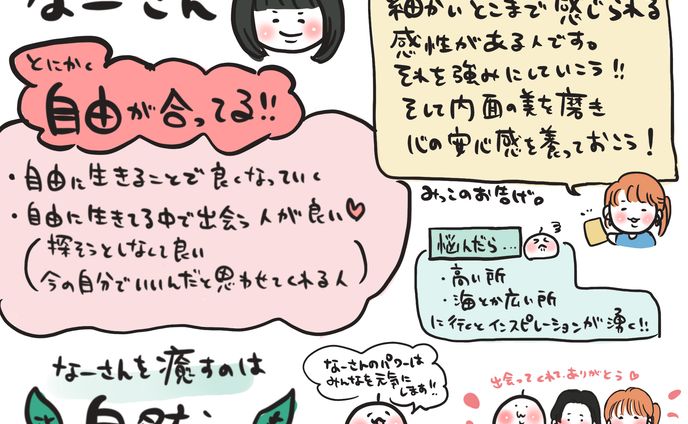 なーさん
とにかく
自由が合ってる!!
・自由に生きることで良くなっていく
・自由に生きてる中で出会う人が良い♥
(探そうとしなくて良い
今の自分でいいんだと思わせてくれる人)
細かいとこまで感じられる
感性がある人です。
それを強みにしていこう!!
そして内面の美を磨き
心の安心感を養っておこう!
みっこのお告げ。
悩んだら…
・高い所
・海とか広い所
に行くとインスピレーションが湧く!!
なーさんを癒すのは
なーさんのパワーは
みんなを元気に
します!!
出会ってくれて、ありがとう♡